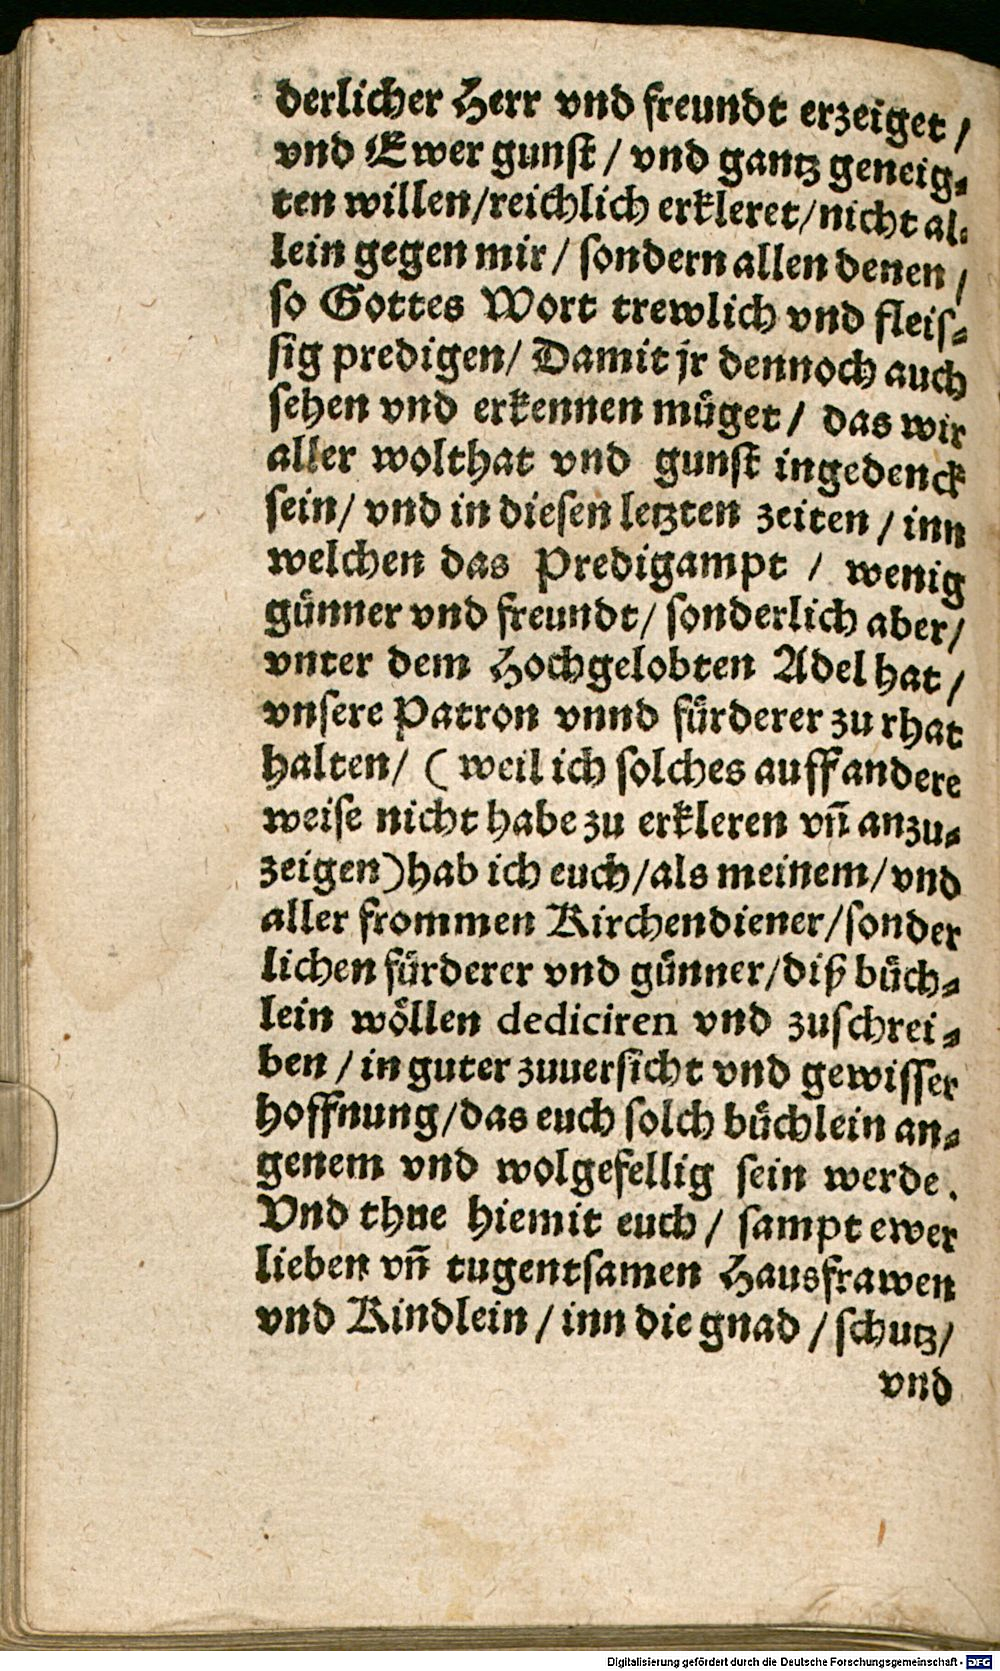 derlicher Herr vnd freundt erzeiget /
vnd Ewer gunst / vnd gantz geneig⸗
ten willen/reichlich erkleret/nicht al⸗
lein gegen mir / sondern allen denen /
so Gottes Wort trewlich vnd fleis⸗
sig predigen/ Damit jr dennoch auch
sehen vnd erkennen müget / das wir
aller wolthat vnd gunst ingedenck
sein/ vnd in diesen letzten zeiten / inn
welchen das Predigampt / wenig
günner vnd freundt/ sonderlich aber/
vnter dem Hochgelobten Adel hat /
vnsere Patron vnnd fürderer zu rhat
halten/ ( weil ich solches auff andere
weise nicht habe zu erkleren vñ anzu⸗
zeigen)hab ich euch/als meinem/vnd
aller frommen Kirchendiener/sonder
lichen fürderer vnd günner/diß büch⸗
lein wöllen dediciren vnd zuschrei⸗
ben / in guter zuuersicht vnd gewisser
hoffnung/das euch solch büchlein an⸗
genem vnd wolgefellig sein werde.
Vnd thue hiemit euch / sampt ewer
lieben vñ tugentsamen Hausfrawen
vnd Kindlein / inn die gnad / schutz/
vnd
Digitalisierung gefördert durch die Deutsche Forschungsgemeinschaft - DFG